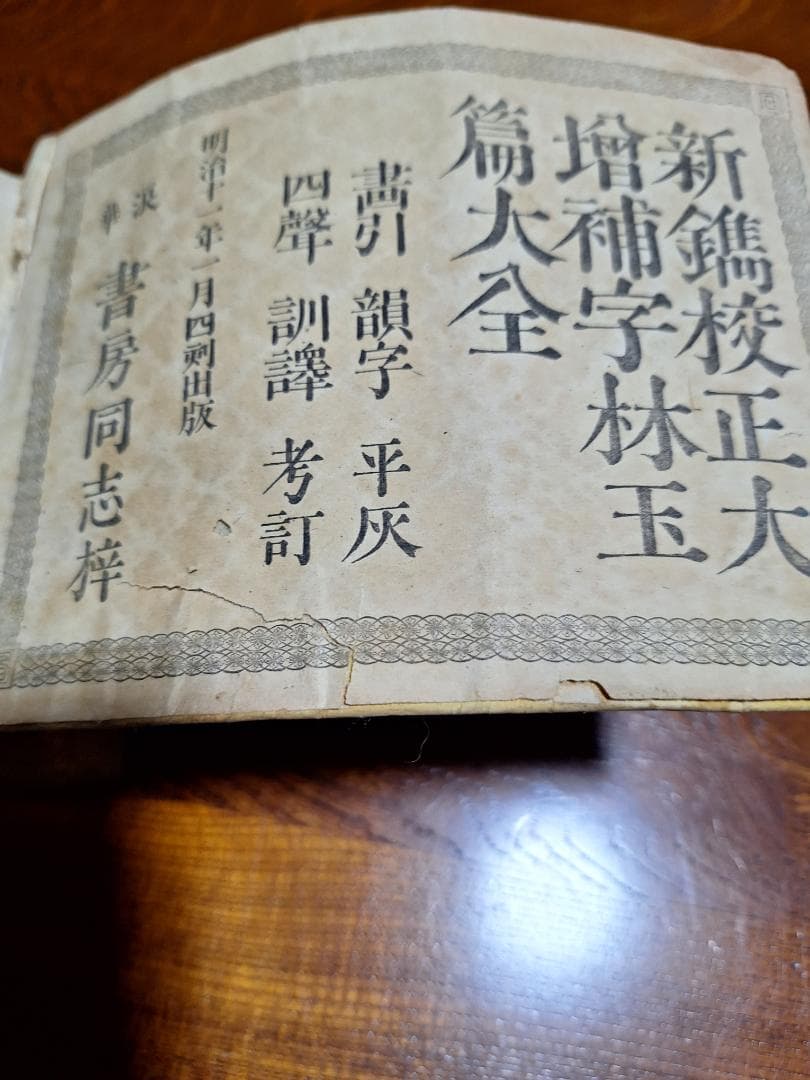 新鐫校正大
增補字林玉
篇大全
畵引 韻字 平灰
四聲 訓譯 考訂
明治十一年一月四刻出版
浪華 書房同志梓